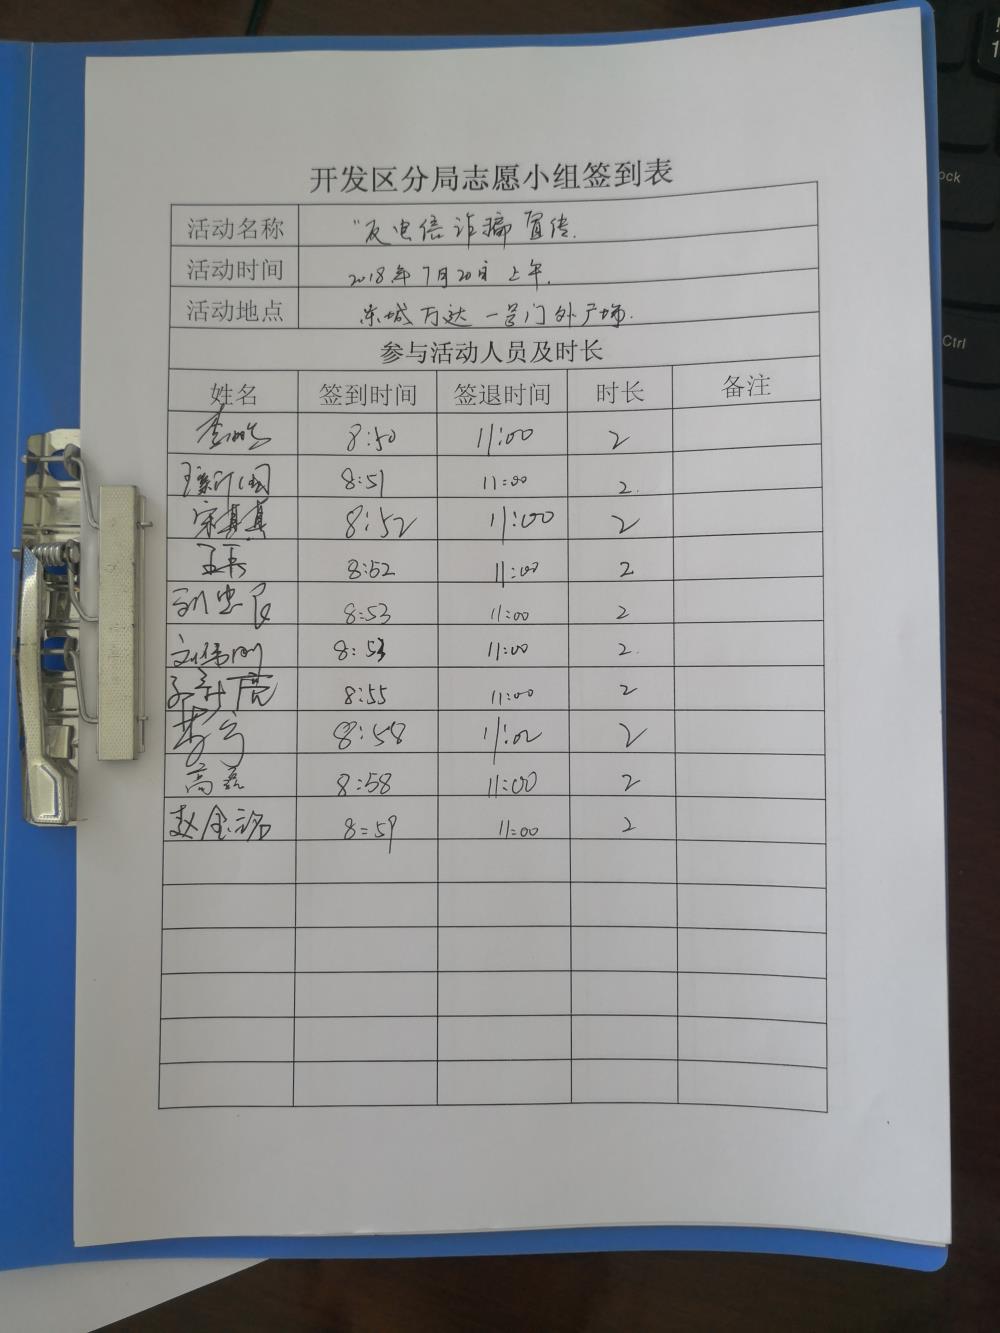 开发区分局志愿小组签到表
活动名称 "反电信诈骗宣传.
活动时间 2018年7月20日上午.
活动地点 东城万达一号门外广场.
参与活动人员及时长
姓名 签到时间 签退时间 时长 备注
8:50 11:00 2
8:51 11:00 2.
宋真真 8:52 11:00 2
8:52 11:00 2
刘忠良 8:53 11:00 2
刘伟刚 8:53 11:00 2.
8:55 11:00 2
8:58 11:02 2
高磊 8:58 11:00 2
赵金铭 8:59 11:00 2
ock
Ctrl